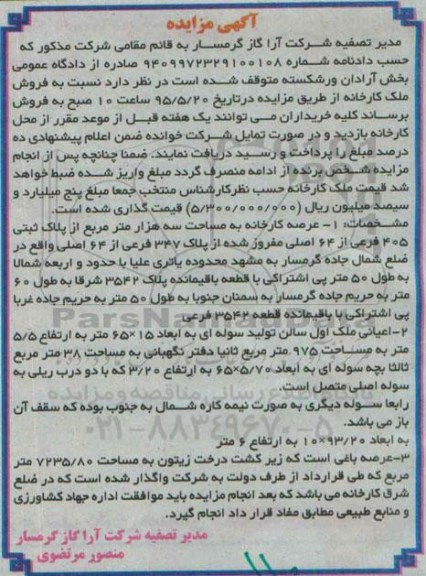 آگهی مزایده
مدیر تصفیه شرکت آرا گاز گرمسار به قائم مقامی شرکت مذکور که
حسب دادنامه شماره ۹۴۰۹۹۷۲۳۲۹۱۰۰۱۰۸ صادره از دادگاه عمومی
بخش آرادان ورشکسته متوقف شده است در نظر دارد نسبت به فروش
ملک کارخانه از طریق مزایده درتاریخ ۹۵/۵/۲۰ ساعت ۱۰ صبح به فروش
برساند کلیه خریداران می توانند یک هفته قبل از موعد مقرر از محل
کارخانه بازدید و در صورت تمایل شرکت خوانده ضمن اعلام پیشنهادی ده
درصد مبلغ را پرداخت و رسید دریافت نمایند. ضمنا چنانچه پس از انجام
مزایده شخص برنده از ادامه منصرف گردد مبلغ واریز شده ضبط خواهد
شد قیمت ملک کارخانه حسب نظرکارشناس منتخب جمعا مبلغ پنج میلیارد و
سیصد میلیون ریال (۵/۳۰۰/۰۰۰/۰۰۰) قیمت گذاری شده است.
مشخصات: ۱- عرصه کارخانه به مساحت سه هزار متر مربع از پلاک ثبتی
۴۰۵ فرعی از ۶۴ اصلی مفروز شده از پلاک ۳۴۷ فرعی از ۶۴ اصلی واقع در
ضلع شمال جاده گرمسار به مشهد محدوده یاتری علیا با حدود و اربعه شمالا
به طول ۵۰ متر پی اشتراکی با قطعه باقیمانده پلاک ۳۵۴۲ شرقا به طول ۶۰
متر به حریم جاده گرمسار به سمنان جنوبا به طول ۵۰ متر به حریم جاده غربا
پی اشتراکی با باقیمانده قطعه ۳۵۴۲ فرعی
۲-اعیانی ملک اول سالن تولید سوله ای به ابعاد ۱۵×۶۵ متر به ارتفاع ۵/۵
متر به مساحت ۹۷۵ متر مربع ثانیا دفتر نگهبانی به مساحت ۳۸ متر مربع
ثالثا بچه سوله ای به ابعاد ۵/۷۰×۶۵ به ارتفاع ۳/۲۰ که با دو درب ریلی به
سوله اصلی متصل است.
رابعا سوله دیگری به صورت نیمه کاره شمال به جنوب بوده که سقف آن
باز می باشد.
به ابعاد ۹۳/۲۰×۱۰ به ارتفاع ۶ متر
۳-عرصه باغی است که زیر کشت درخت زیتون به مساحت ۷۲۳۵/۸۰ متر
مربع که طی قرارداد از طرف دولت به شرکت واگذار شده است که در ضلع
شرق کارخانه می باشد که بعد انجام مزایده باید موافقت اداره جهاد کشاورزی
و منابع طبیعی مطابق مفاد قرار داد انجام گیرد.
مدیر تصفیه شرکت آرا گاز گرمسار
منصور مرتضوی
ParsNamad
۰۲۱-۸۸۳۴۹۶۷۰-۵